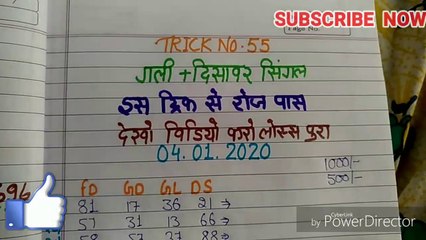 SUBSCRIBE NOW
TRICK No. 55
गली + दिसावर सिंगल
इस ट्रिक से रोज पास
देखो विडियो करो लोस्स पुरा
04.01.2020
1000/-
500/-
696
FD GD GL DS
81 17 36 21 →
57 31 13 66 →
58 57 27 88 →
by CyberLink PowerDirector